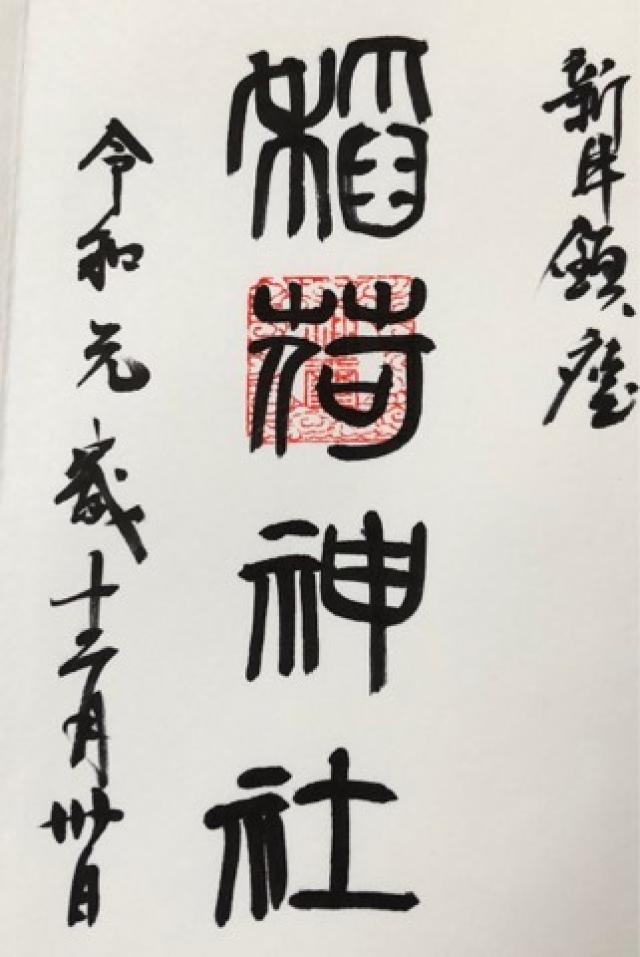 新井鎮座
稲荷神社
令和元歳十二月卅日